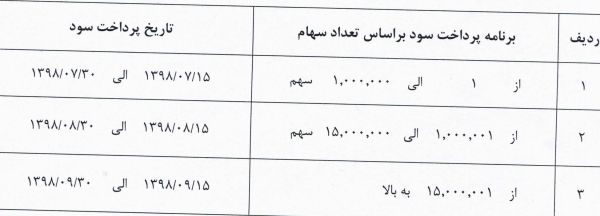 ردیف برنامه پرداخت سود براساس تعداد سهام تاریخ پرداخت سود
۱ از ۱ الی ۱,۰۰۰,۰۰۰ سهم ۱۳۹۸/۰۷/۱۵ الی ۱۳۹۸/۰۷/۳۰
۲ از ۱,۰۰۰,۰۰۱ الی ۱۵,۰۰۰,۰۰۰ سهم ۱۳۹۸/۰۸/۱۵ الی ۱۳۹۸/۰۸/۳۰
۳ از ۱۵,۰۰۰,۰۰۱ به بالا ۱۳۹۸/۰۹/۱۵ الی ۱۳۹۸/۰۹/۳۰